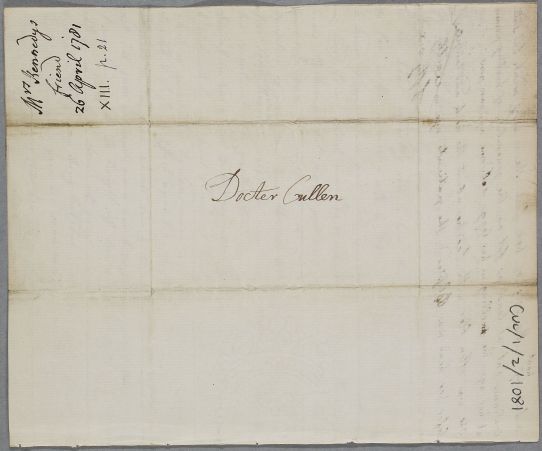 Mrs Kennedys
friend
26 April 1781
XIII. p. 21
Docter Cullen
CUL/1/2/1081